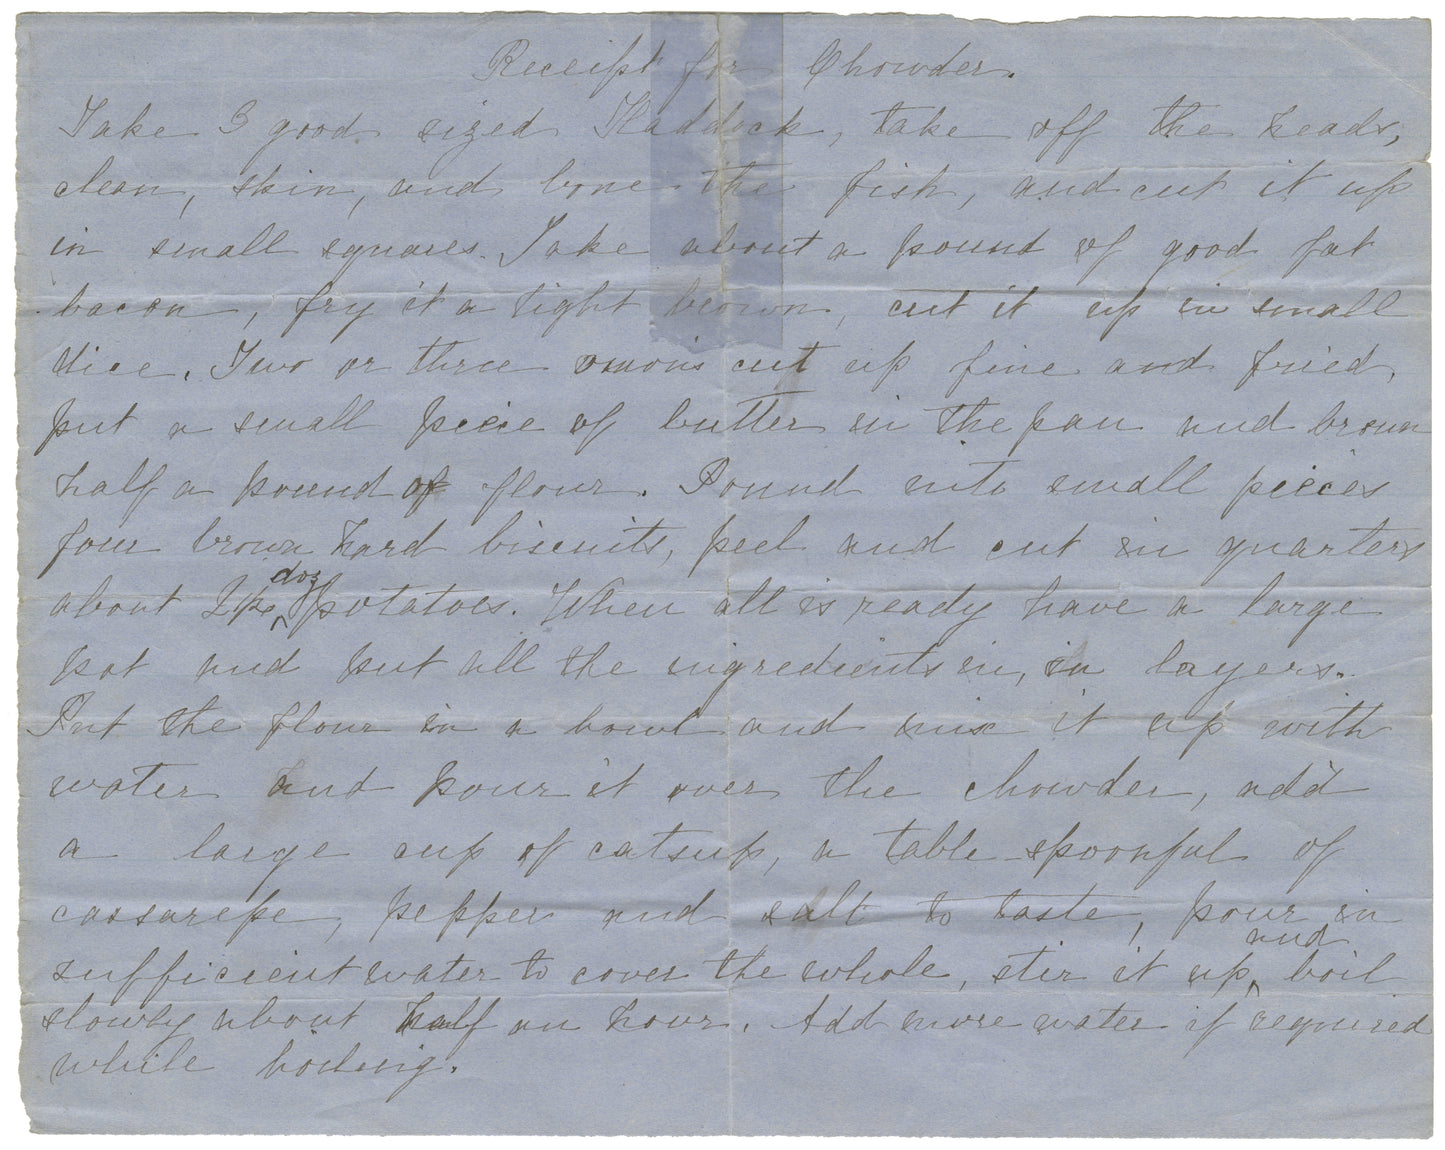 Receipt for Chowder.
Take 3 good sized Haddock, take off the heads,
clean, skin, and bone the fish, and cut it up
in small squares. Take about a pound of good fat
bacon, fry it a light brown, cut it up in small
dice. Two or three onions cut up fine and fried,
put a small piece of butter in the pan and brown
half a pound of flour. Pound into small pieces
four brown hard biscuits, peel and cut in quarters
about 2½ doz potatoes. When all is ready have a large
pot and put all the ingredients in, in layers.
Put the flour in a bowl and mix it up with
water and pour it over the chowder, add
a large cup of catsup, a table spoonful of
cassarepe, pepper and salt to taste, pour in
sufficient water to cover the whole, stir it up, and boil
slowly about half an hour. Add more water if required
while boiling.